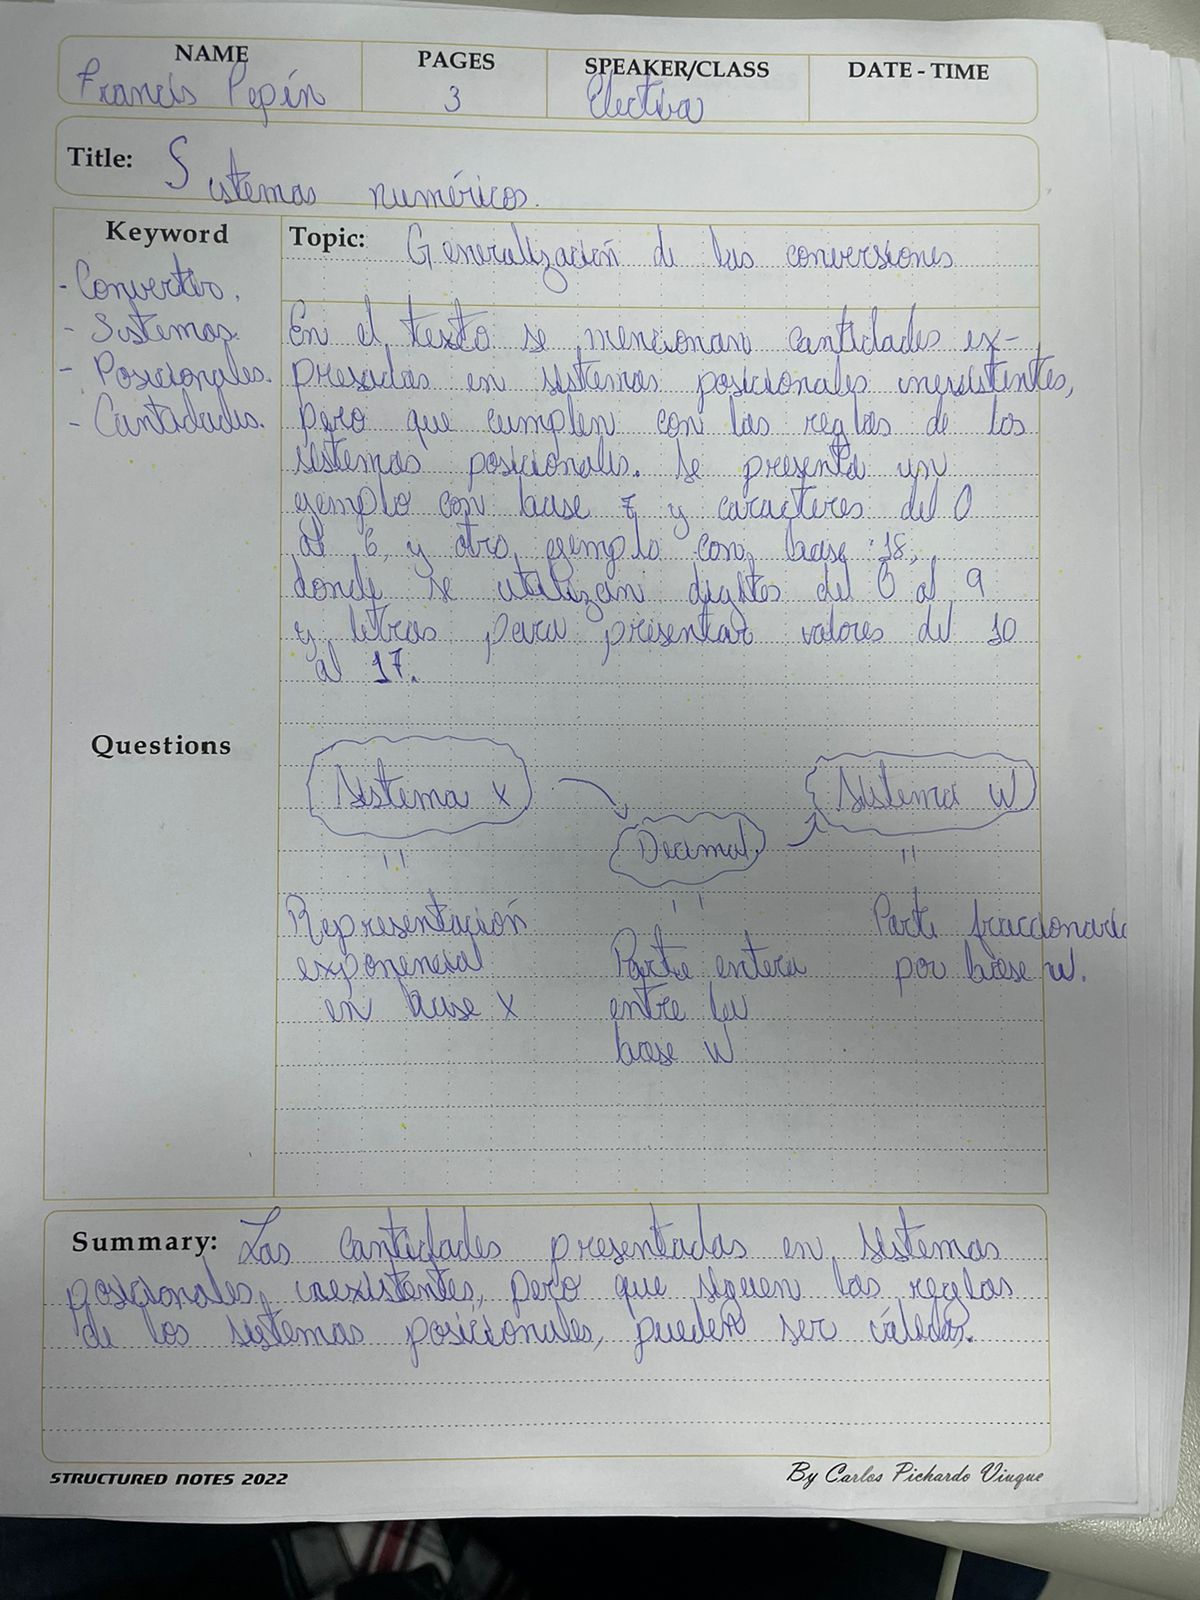 NAME
PAGES
SPEAKER/CLASS
DATE - TIME
Francis Pepín
3
Electiva
Title: Sistemas numéricos.
Keyword
- Convertir.
- Sistemas.
- Posicionales.
- Cantidades.
Topic: Generalización de las conversiones
En el texto se mencionan cantidades ex-
presadas en sistemas posicionales inexistentes,
pero que cumplen con las reglas de los
sistemas posicionales. Se presenta un
ejemplo con base 7 y caracteres del 0
al 6, y otro ejemplo con base 18,
donde se utilizan digitos del 0 al 9
y letras para presentar valores del 10
al 17.
Questions
Sistema x
Decimal
Sistema w
Representación
exponencial
en base x
Parte entera
entre la
base w
Parte fraccionaria
por base w.
Summary: Las cantidades presentadas en sistemas
posicionales inexistentes, pero que siguen las reglas
de los sistemas posicionales, pueden ser válidas.
STRUCTURED NOTES 2022
By Carlos Pichardo Viuque